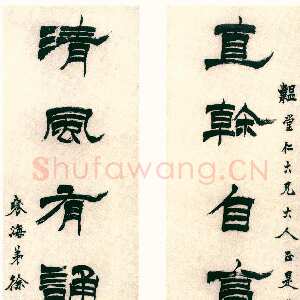 韞堂仁六兄大人正是
直榦自高
清風有誦
啓海弟徐
Shufawang.CN